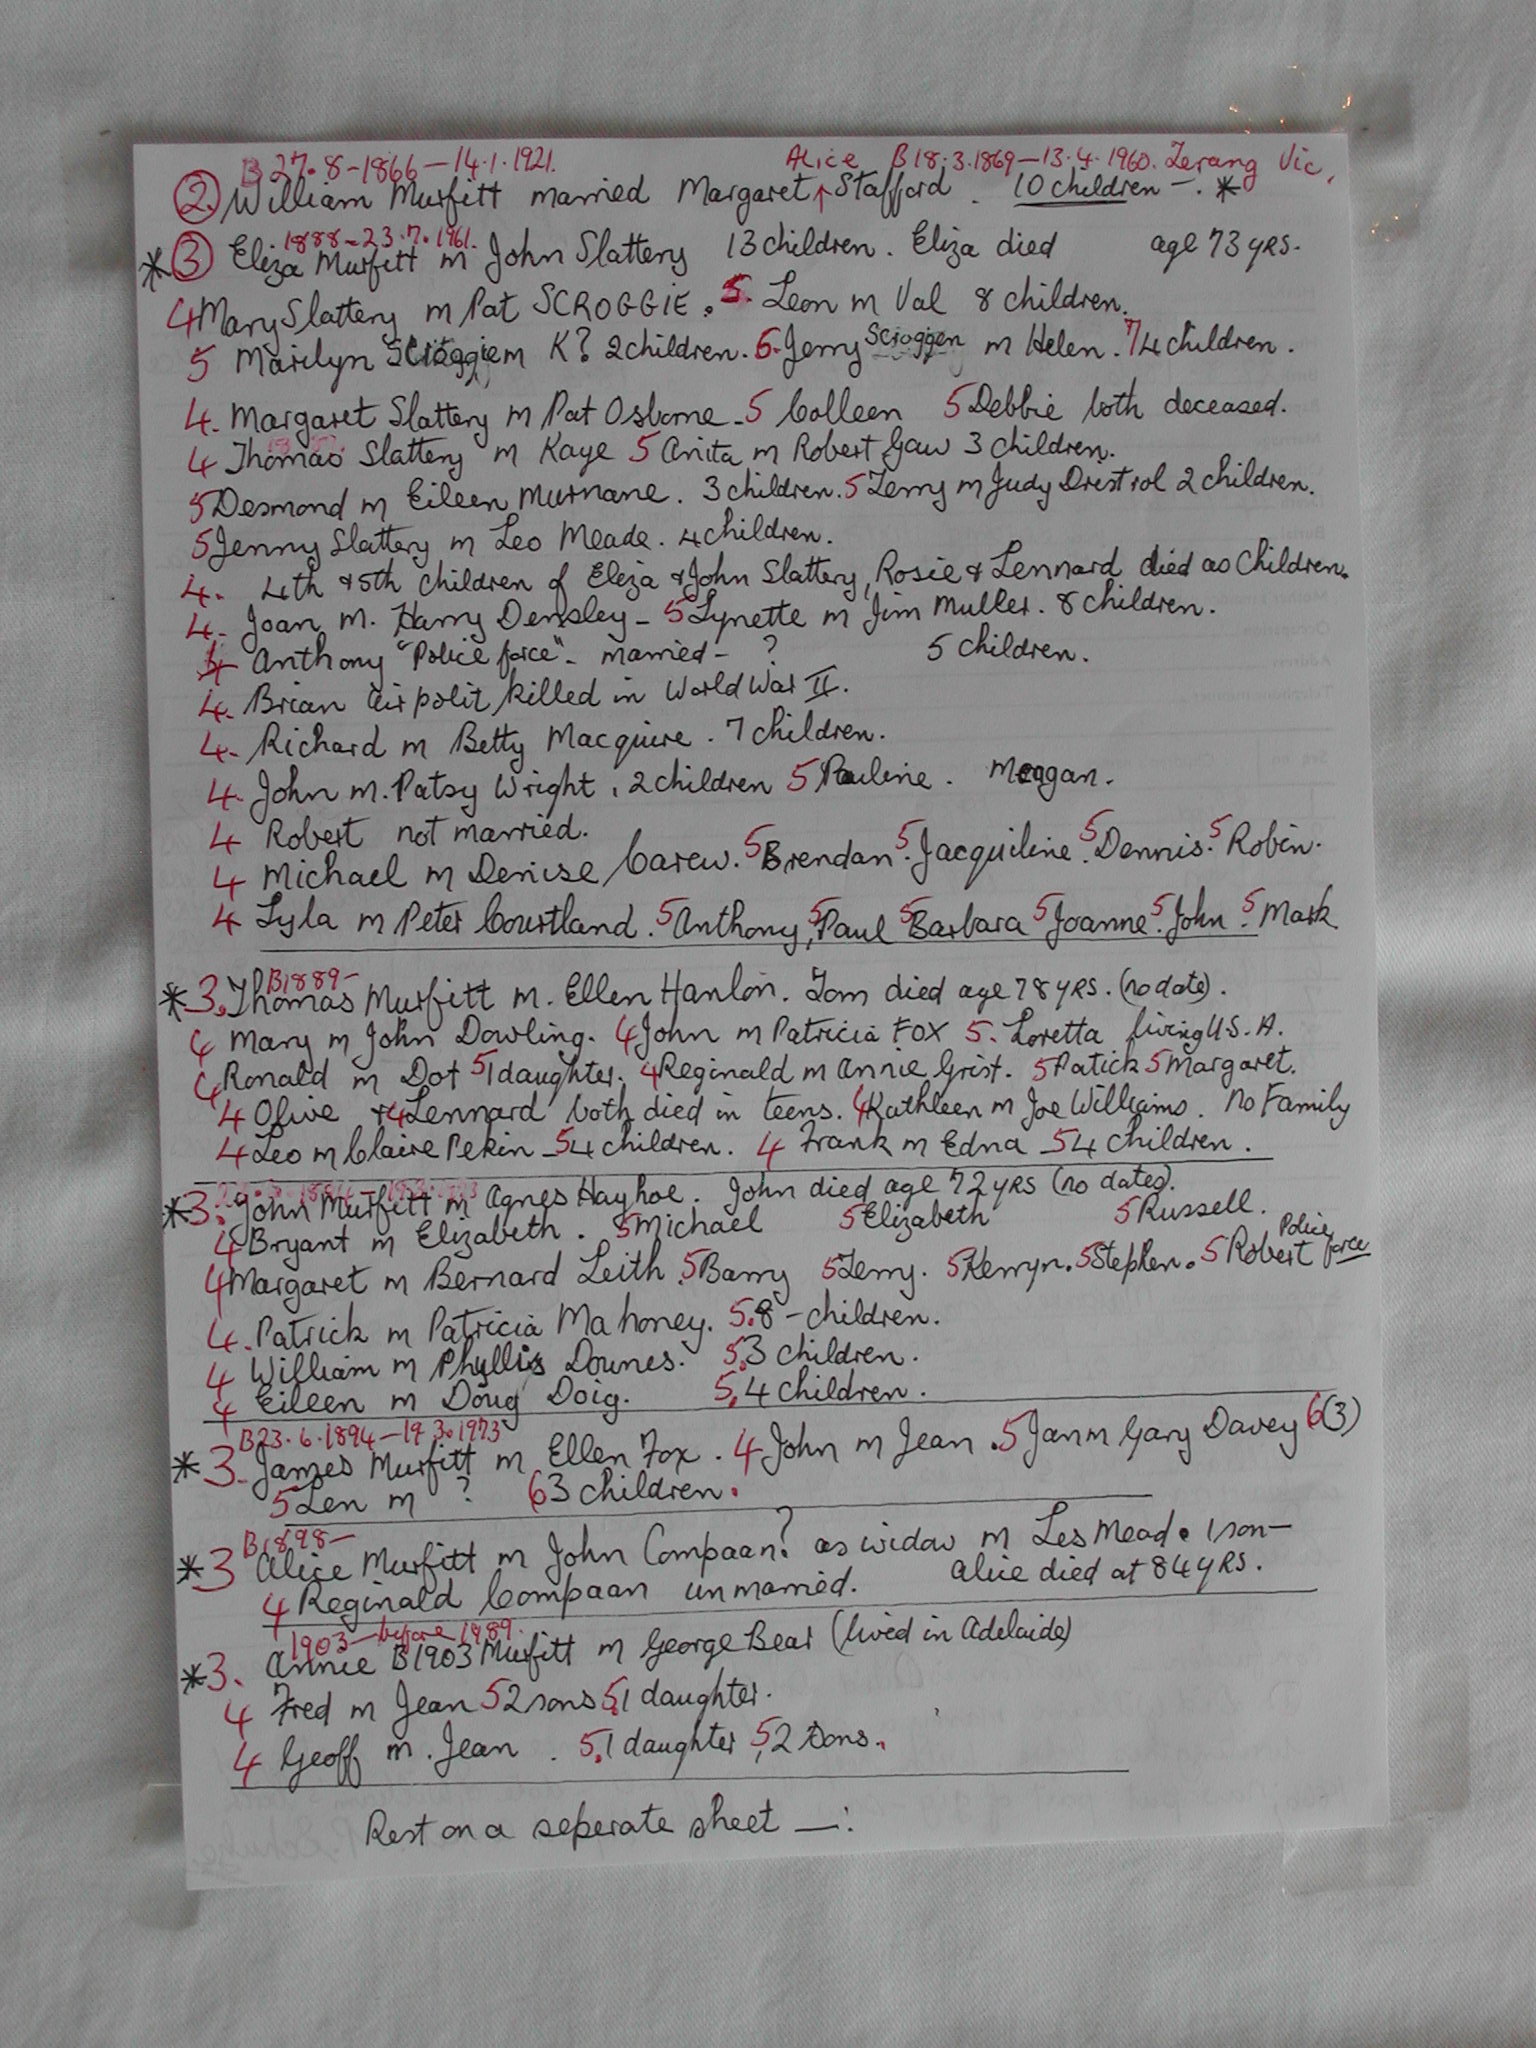 B 27.8-1866-14.1.1921. Alice B18.3.1869-13.4.1960. Terang Vic.
2. William Murfitt married Margaret ↑ Stafford. 10 children -. *
1888-23.7.1961.
* 3 Eliza Murfitt m John Slattery 13 children. Eliza died age 73 yrs.
4 Mary Slattery m Pat SCROGGIE. 5. Leon m Val 8 children.
5 Marilyn Scroggie m K? 2 children. 6. Jerry Scroggen m Helen. 7 4 children.
4. Margaret Slattery m Pat Osborne - 5 Colleen 5 Debbie both deceased.
4 Thomas Slattery m Kaye 5 Anita m Robert Gaw 3 children.
5 Desmond m Eileen Murnane. 3 children. 5 Terry m Judy Drestrol 2 children.
5 Jenny Slattery m Leo Meade. 4 children.
4. 4th & 5th children of Eliza & John Slattery, Rosie & Lennard died as Children.
4. Joan m. Harry Densley - 5 Lynette m Jim Muller. 8 children.
4 Anthony "Police force" - married - ? 5 children.
4. Brian air polit killed in World War II.
4. Richard m Betty Macquire. 7 children.
4. John m. Patsy Wright, 2 children 5 Pauline. Meagan.
4 Robert not married.
4 Michael m Denise Carew. 5 Brendan. 5 Jacquiline. 5 Dennis. 5 Robin.
4 Lyla m Peter Courtland. 5 Anthony, 5 Paul 5 Barbara 5 Joanne. 5 John. 5 Mark
B1889-
* 3. Thomas Murfitt m. Ellen Hanlon. Tom died age 78 yrs. (no date).
4 Mary m John Dowling. 4 John m Patricia FOX 5. Loretta living U.S.A.
4 Ronald m Dot 5 1 daughter. 4 Reginald m Annie Grist. 5 Patick 5 Margaret.
4 Olive & 4 Lennard both died in teens. 4 Kathleen m Joe Williams. No Family
4 Leo m Claire Pekin - 5 4 children. 4 Frank m Edna - 5 4 children.
* 3. John Murfitt m Agnes Hayhoe. John died age 72 yrs (no dates).
4 Bryant m Elizabeth. 5 Michael 5 Elizabeth 5 Russell.
4 Margaret m Bernard Leith. 5 Barry 5 Terry. 5 Kerryn. 5 Stephen. 5 Robert Police force
4. Patrick m Patricia Mahoney. 5. 8 - children.
4 William m Phyllis Downes. 5. 3 children.
4 Eileen m Doug Doig. 5. 4 children.
B23.6.1894-19.3.1973
* 3. James Murfitt m Ellen Fox. 4 John m Jean. 5 Jan m Gary Davey 6 (3)
5 Len m ? 6 3 children.
B1898-
* 3 Alice Murfitt m John Compaan? as widow m Les Mead. 1 son-
4 Reginald Compaan unmarried. Alice died at 84 yrs.
1903-before 1989.
* 3. Annie B1903 Murfitt m George Bear (lived in Adelaide)
4 Fred m Jean 5 2 sons 5. 1 daughter.
4 Geoff m. Jean. 5. 1 daughter 5, 2 sons.
Rest on a seperate sheet -: